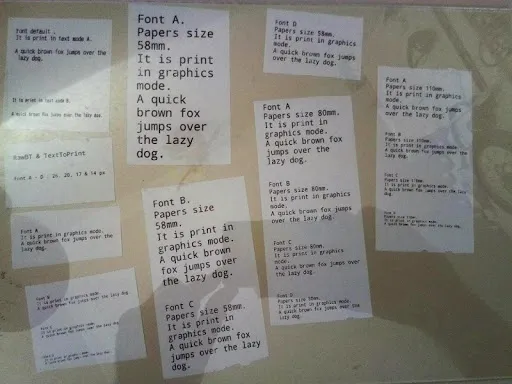 Font default .
It is print in text mode A.
A quick brown fox jumps over the
lazy dog.
It is print in text mode B.
A quick brown fox jumps over the lazy dog.
RawBT & TextToPrint
Font A - D , 24, 20, 17 & 14 px
Font A
It is print in graphics mode.
A quick brown fox jumps over the
lazy dog.
Font B
It is print in graphics mode
A quick brown fox jumps over the lazy dog.
Font C
It is print in graphics mode.
A quick brown fox jumps over the lazy dog.
It is print in graphics mode.
A quick brown fox jumps over the lazy dog.
Font A.
Papers size
58mm.
It is print
in graphics
mode.
A quick
brown fox
jumps over
the lazy
dog.
Font B.
Papers size
58mm.
It is print in
graphics mode.
A quick brown
fox jumps over
the lazy dog.
Font C
Papers size 58mm.
It is print in
graphics mode.
A quick brown fox
jumps over the lazy
dog.
Font D
Papers size 58mm.
It is print in graphics
mode.
A quick brown fox jumps
over the lazy dog.
Font A
Papers size 80mm.
It is print in
graphics mode.
A quick brown fox
jumps over the lazy
dog.
Font B
Papers size 80mm.
It is print in graphics
mode.
A quick brown fox jumps
over the lazy dog.
Font C
Papers size 80mm.
It is print in graphics mode.
A quick brown fox jumps over
the lazy dog.
Font D
Papers size 80mm.
It is print in graphics mode.
A quick brown fox jumps over the
lazy dog.
Font A
Papers size 110mm.
It is print in graphics
mode.
A quick brown fox jumps
over the lazy dog.
Font B
Papers size 110mm.
It is print in graphics mode.
A quick brown fox jumps over
the lazy dog.
Font C
Papers size 110mm.
It is print in graphics mode.
A quick brown fox jumps over the
lazy dog.
Font D
Papers size 110mm.
It is print in graphics mode.
A quick brown fox jumps over the lazy
dog.